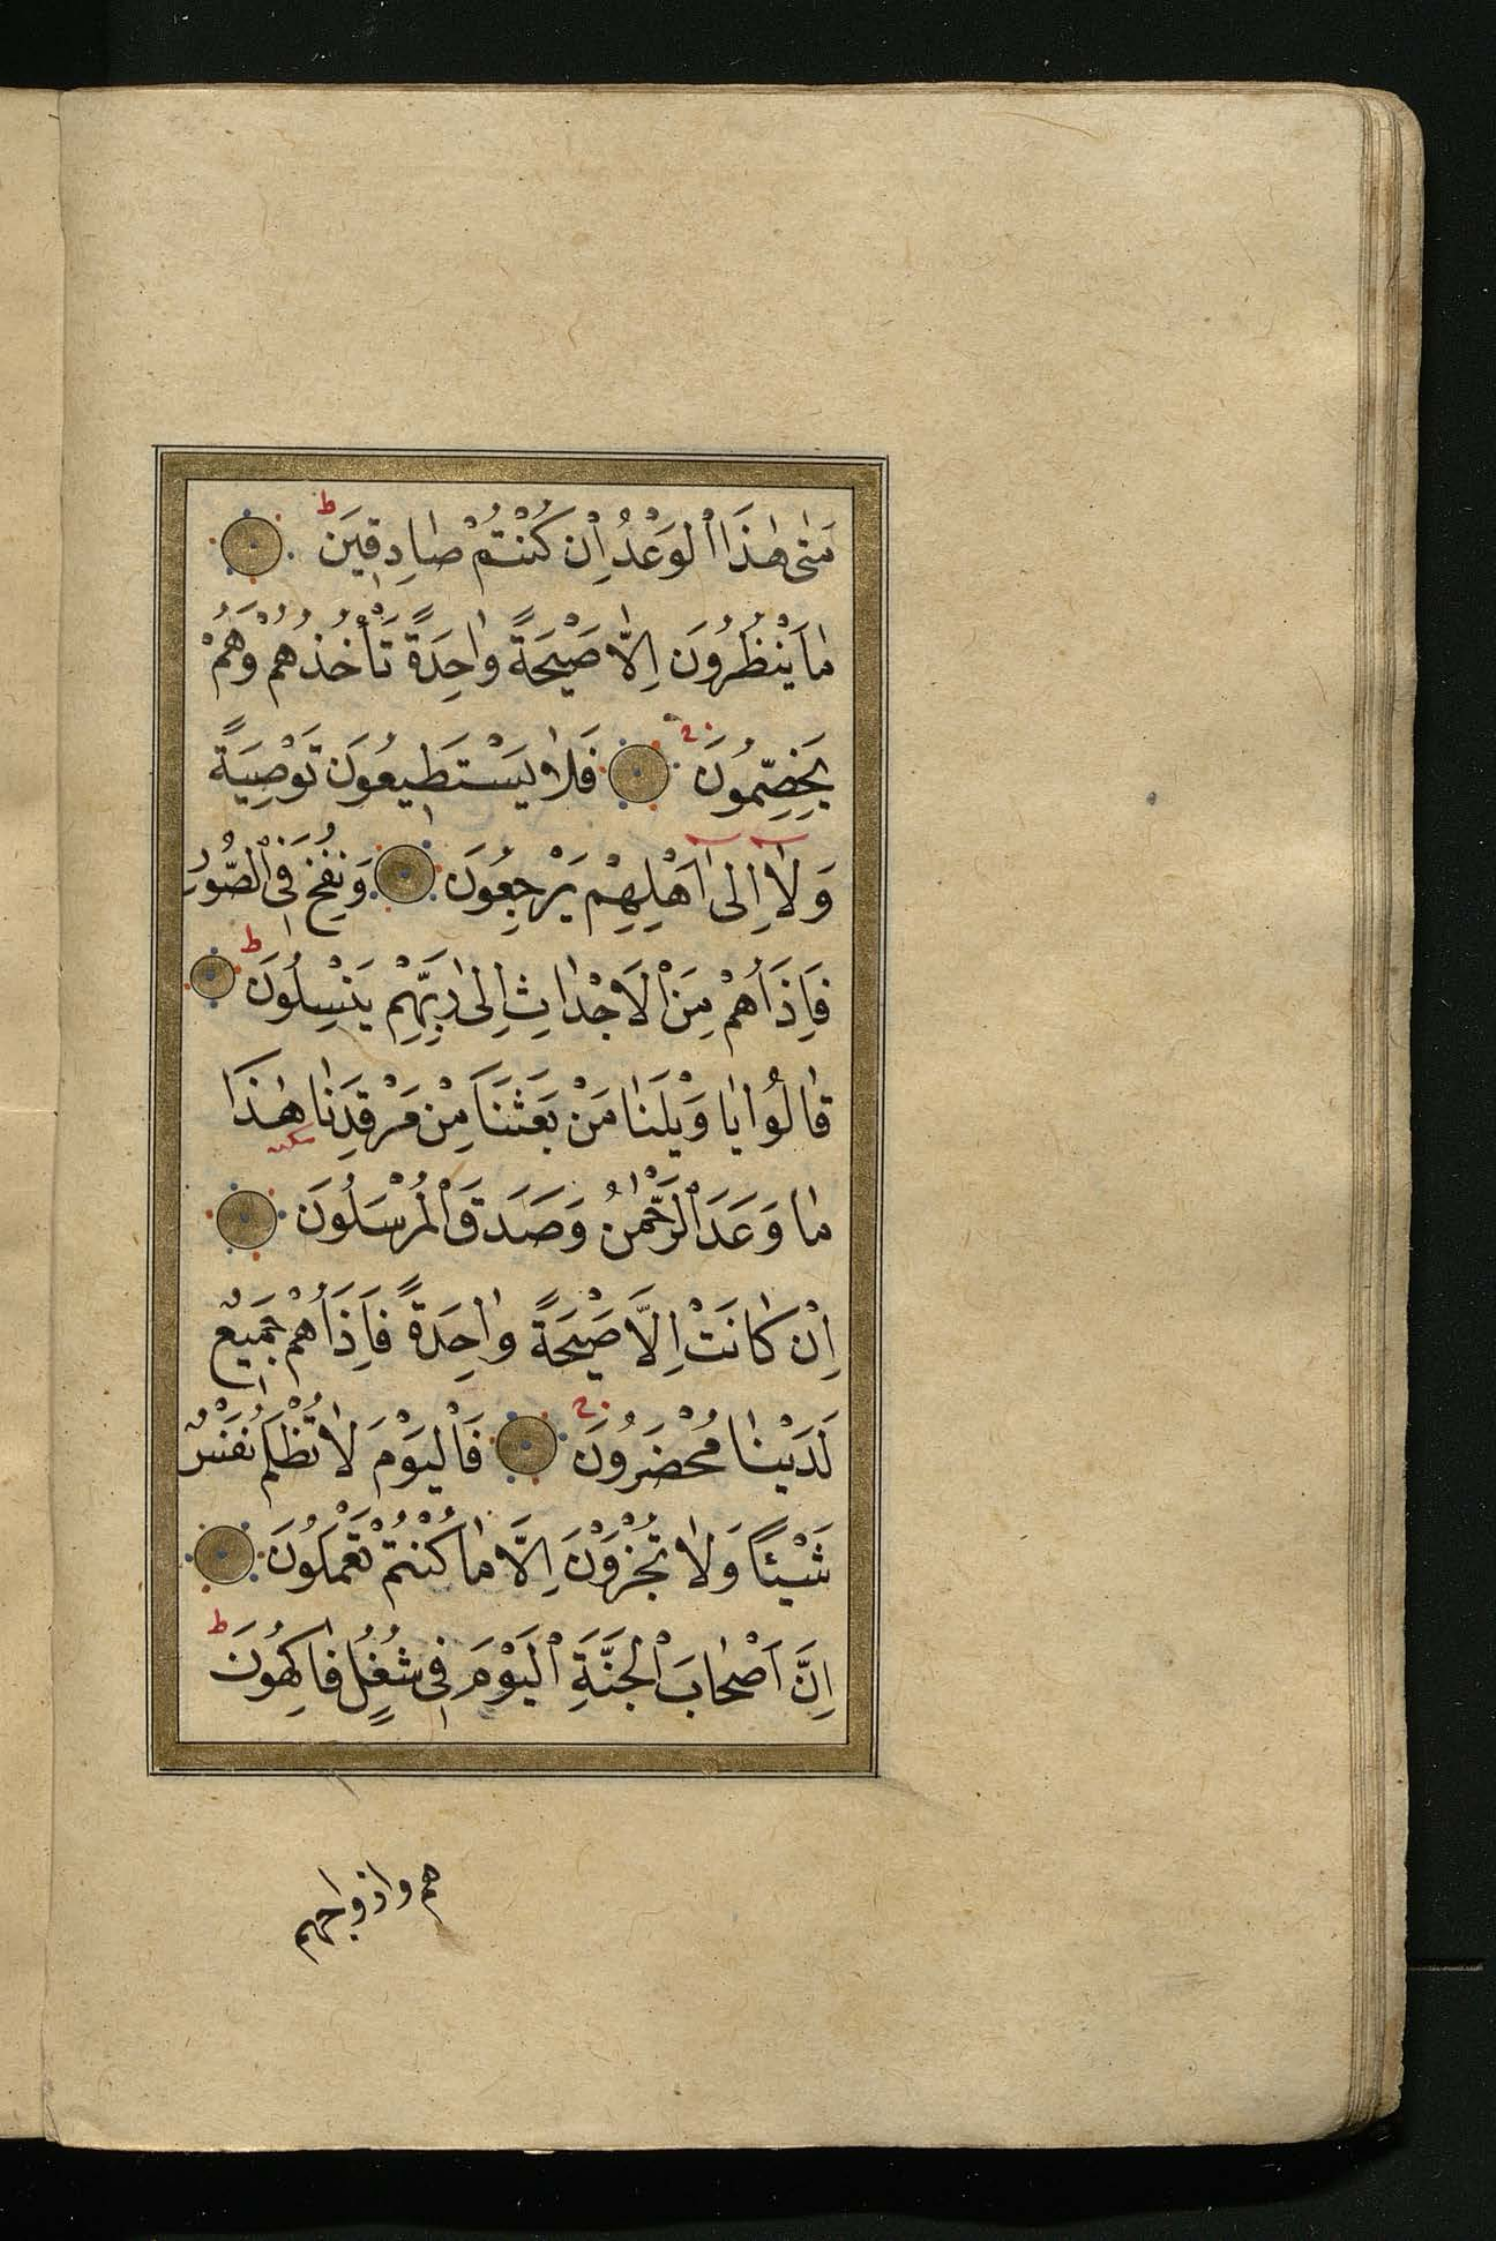 مَتٰى هٰذَا الْوَعْدُ اِنْ كُنْتُمْ صَادِقِينَ ط
مَا يَنْظُرُونَ اِلَّا صَيْحَةً وَاحِدَةً تَأْخُذُهُمْ وَهُمْ
يَخِصِّمُونَ فَلَا يَسْتَطِيعُونَ تَوْصِيَةً
وَلَآ اِلٰٓى اَهْلِهِمْ يَرْجِعُونَ وَنُفِخَ فِى الصُّورِ
فَاِذَا هُمْ مِنَ الْاَجْدَاثِ اِلٰى رَبِّهِمْ يَنْسِلُونَ ط
قَالُوا يَا وَيْلَنَا مَنْ بَعَثَنَا مِنْ مَرْقَدِنَا هٰذَا
سكته
مَا وَعَدَ الرَّحْمٰنُ وَصَدَقَ الْمُرْسَلُونَ
اِنْ كَانَتْ اِلَّا صَيْحَةً وَاحِدَةً فَاِذَا هُمْ جَمِيعٌ
لَدَيْنَا مُحْضَرُونَ فَالْيَوْمَ لَا تُظْلَمُ نَفْسٌ
شَيْئًا وَلَا تُجْزَوْنَ اِلَّا مَا كُنْتُمْ تَعْمَلُونَ
اِنَّ اَصْحَابَ الْجَنَّةِ الْيَوْمَ فِى شُغُلٍ فَاكِهُونَ ط
هم وازواجهم